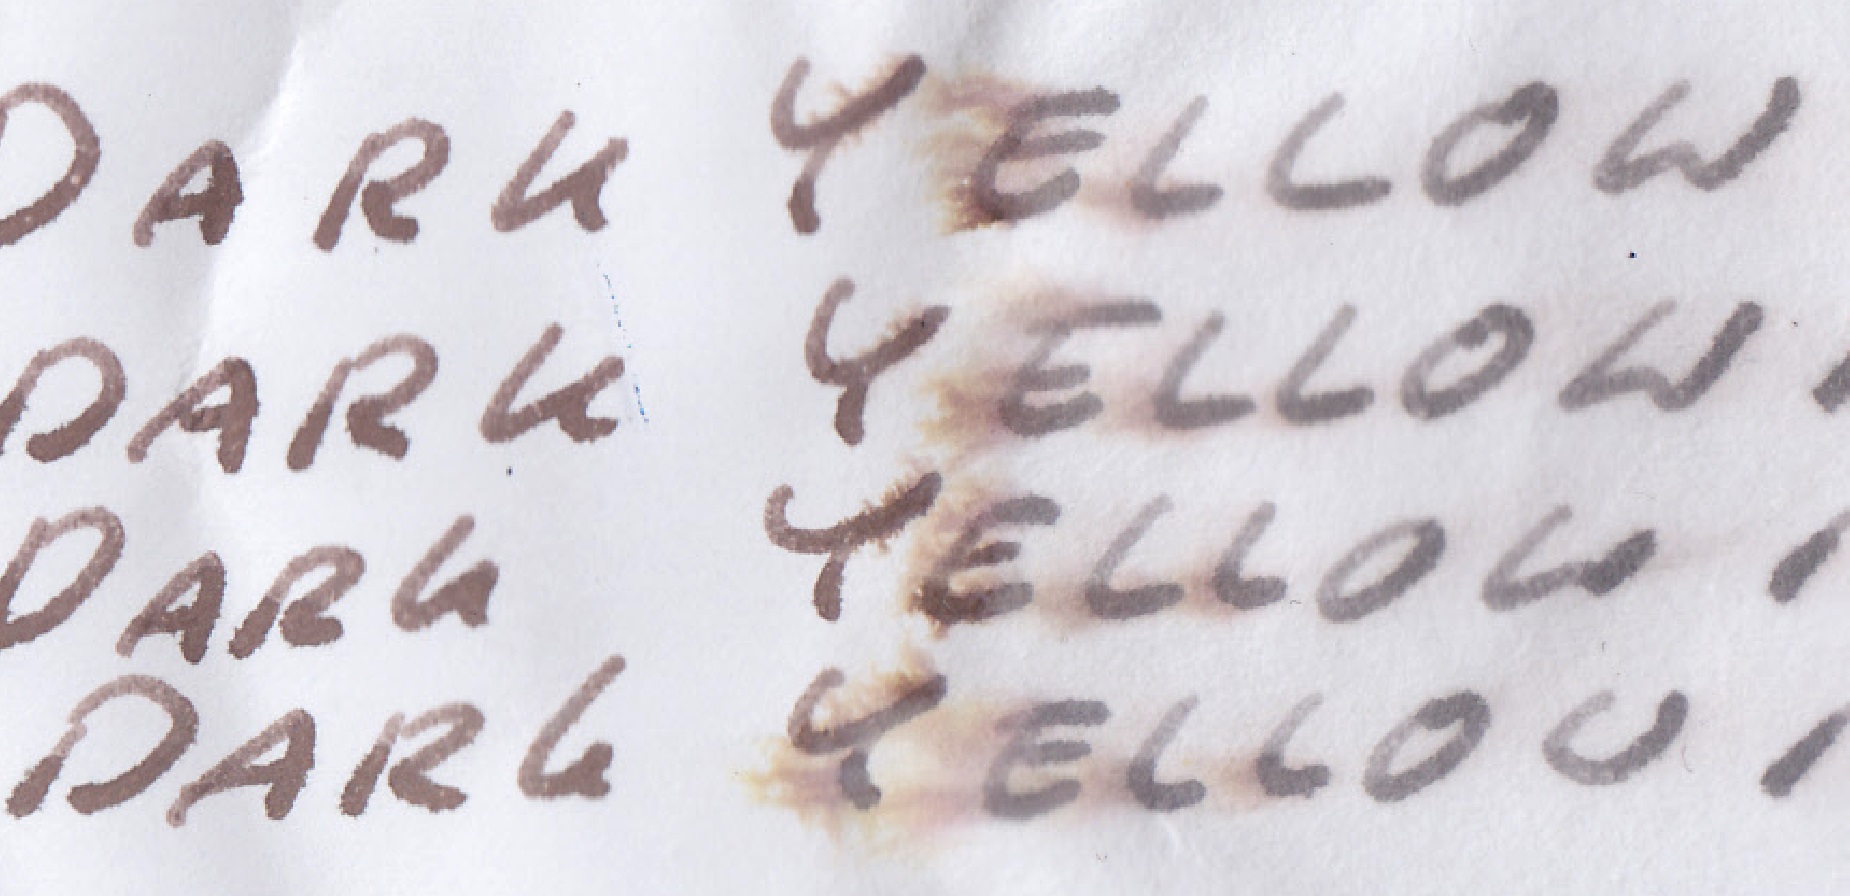 DARK YELLOW
DARK YELLOW
DARK YELLOW
DARK YELLOW